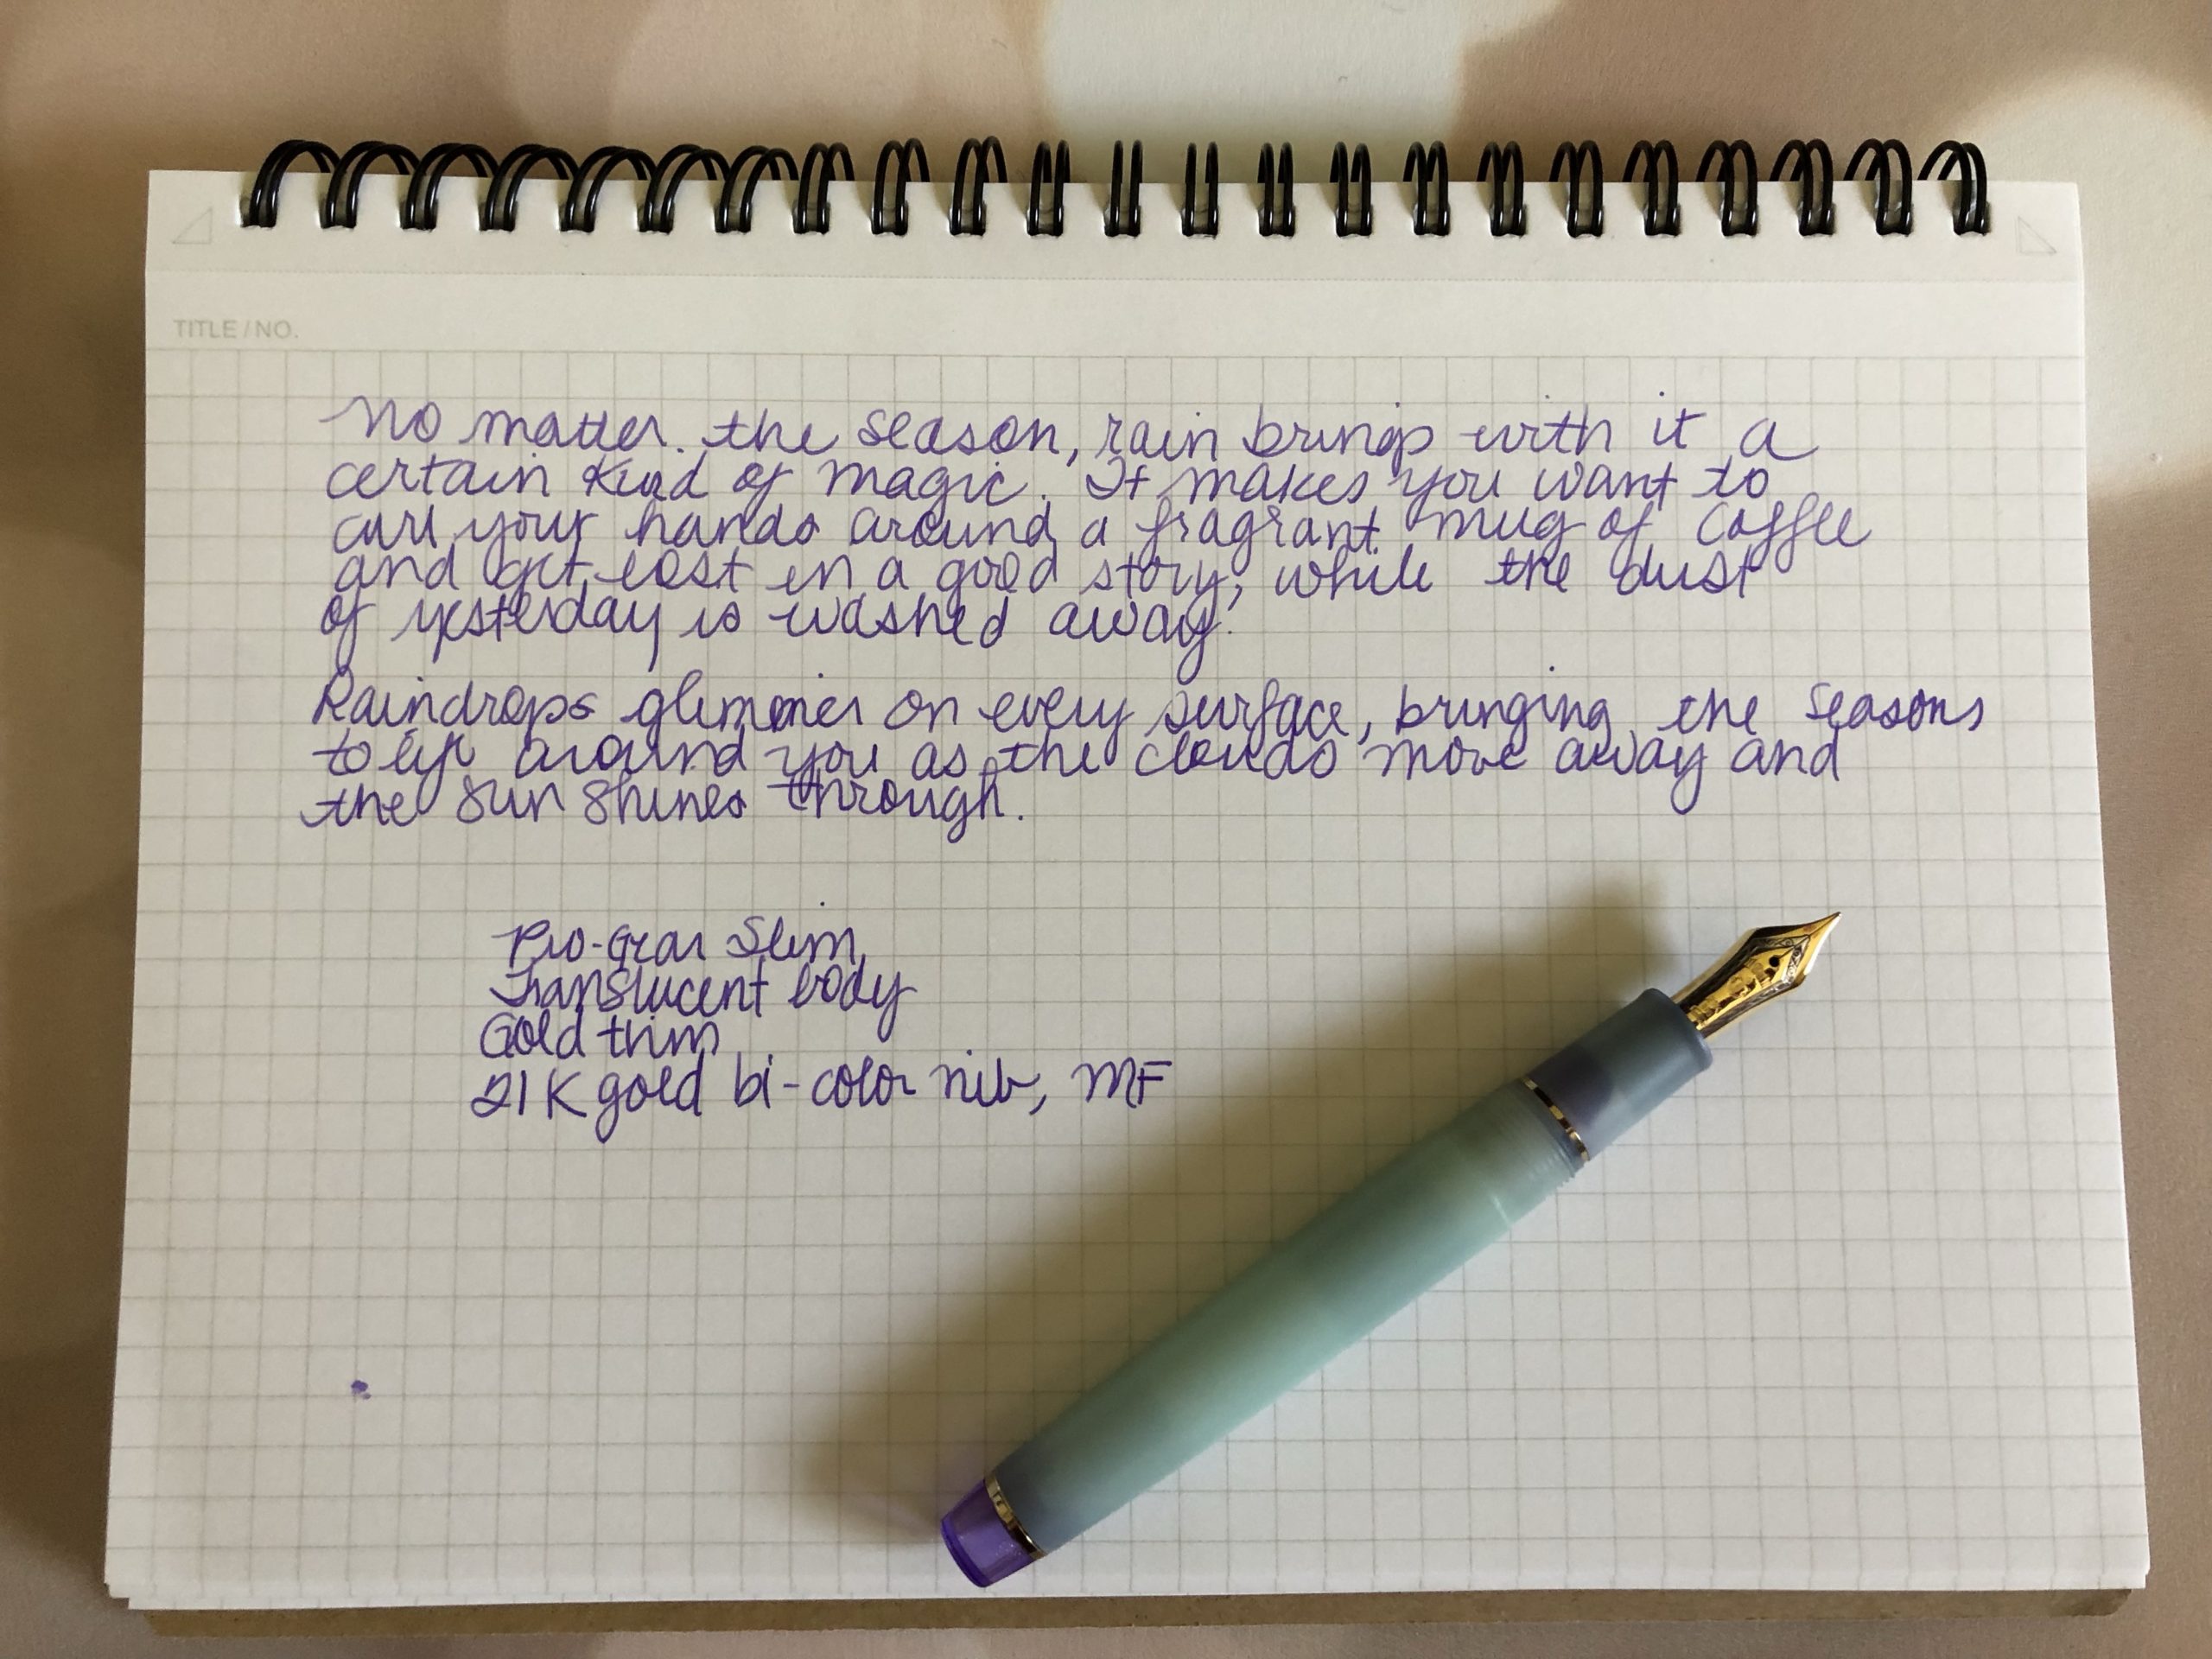 TITLE/NO.
No matter the season, rain brings with it a
certain kind of magic. It makes you want to
curl your hands around a fragrant mug of coffee
and get lost in a good story, while the dust
of yesterday is washed away.
Raindrops glimmer on every surface, bringing the seasons
to life around you as the clouds move away and
the sun shines through.
Pro-Gear Slim
Translucent body
Gold trim
21K gold bi-color nib, MF